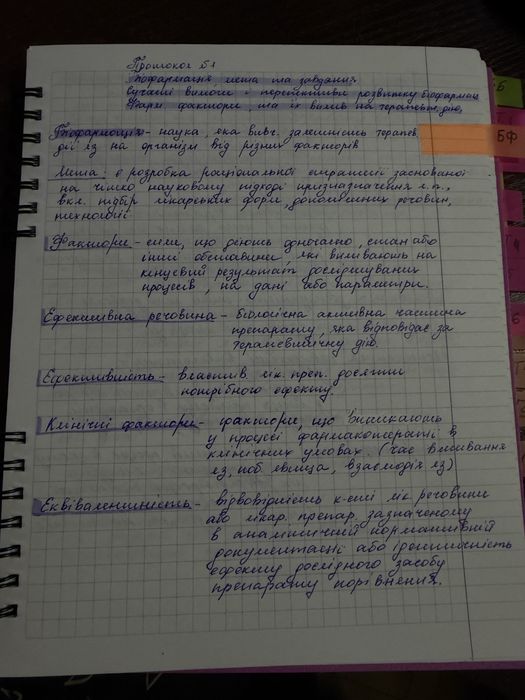 Протокол №1
Біофармація, мета та завдання.
Сучасні вимоги і перспективи розвитку біофармац
Фарм фактори, та їх вплив на терапевт. дію.
Біофармація - наука, яка вивч. залежність терапев.
дії ЛЗ на організм від різних факторів
Мета: є розробка раціональної стратегії заснованої
на чітко науковому підході призначення л.п.,
вкл. підбір лікарських форм, допоміжних речовин,
технології.
Фактори - сили, що діють одночасно, стан або
інші обставини, які впливають на
кінцевий результат досліджуваних
процесів, на дані або параметри.
Ефективна речовина - біологічна активна частина
препарату, яка відповідає за
терапевтичну дію.
Ефективність - властив. лік. преп. досягти
потрібного ефекту.
Клінічні фактори - фактори, що виникають
у процесі фармакотерапії в
клінічних умовах. (час вживання
ЛЗ, поб. явища, взаємодія ЛЗ)
Еквівалентність - відповідність к-сті лік. речовини
або лікар. препар. зазначеному
в аналітичній нормативній
документації або ідентичність
ефекту дослідного засобу
препарату порівняння.
Б
БФ